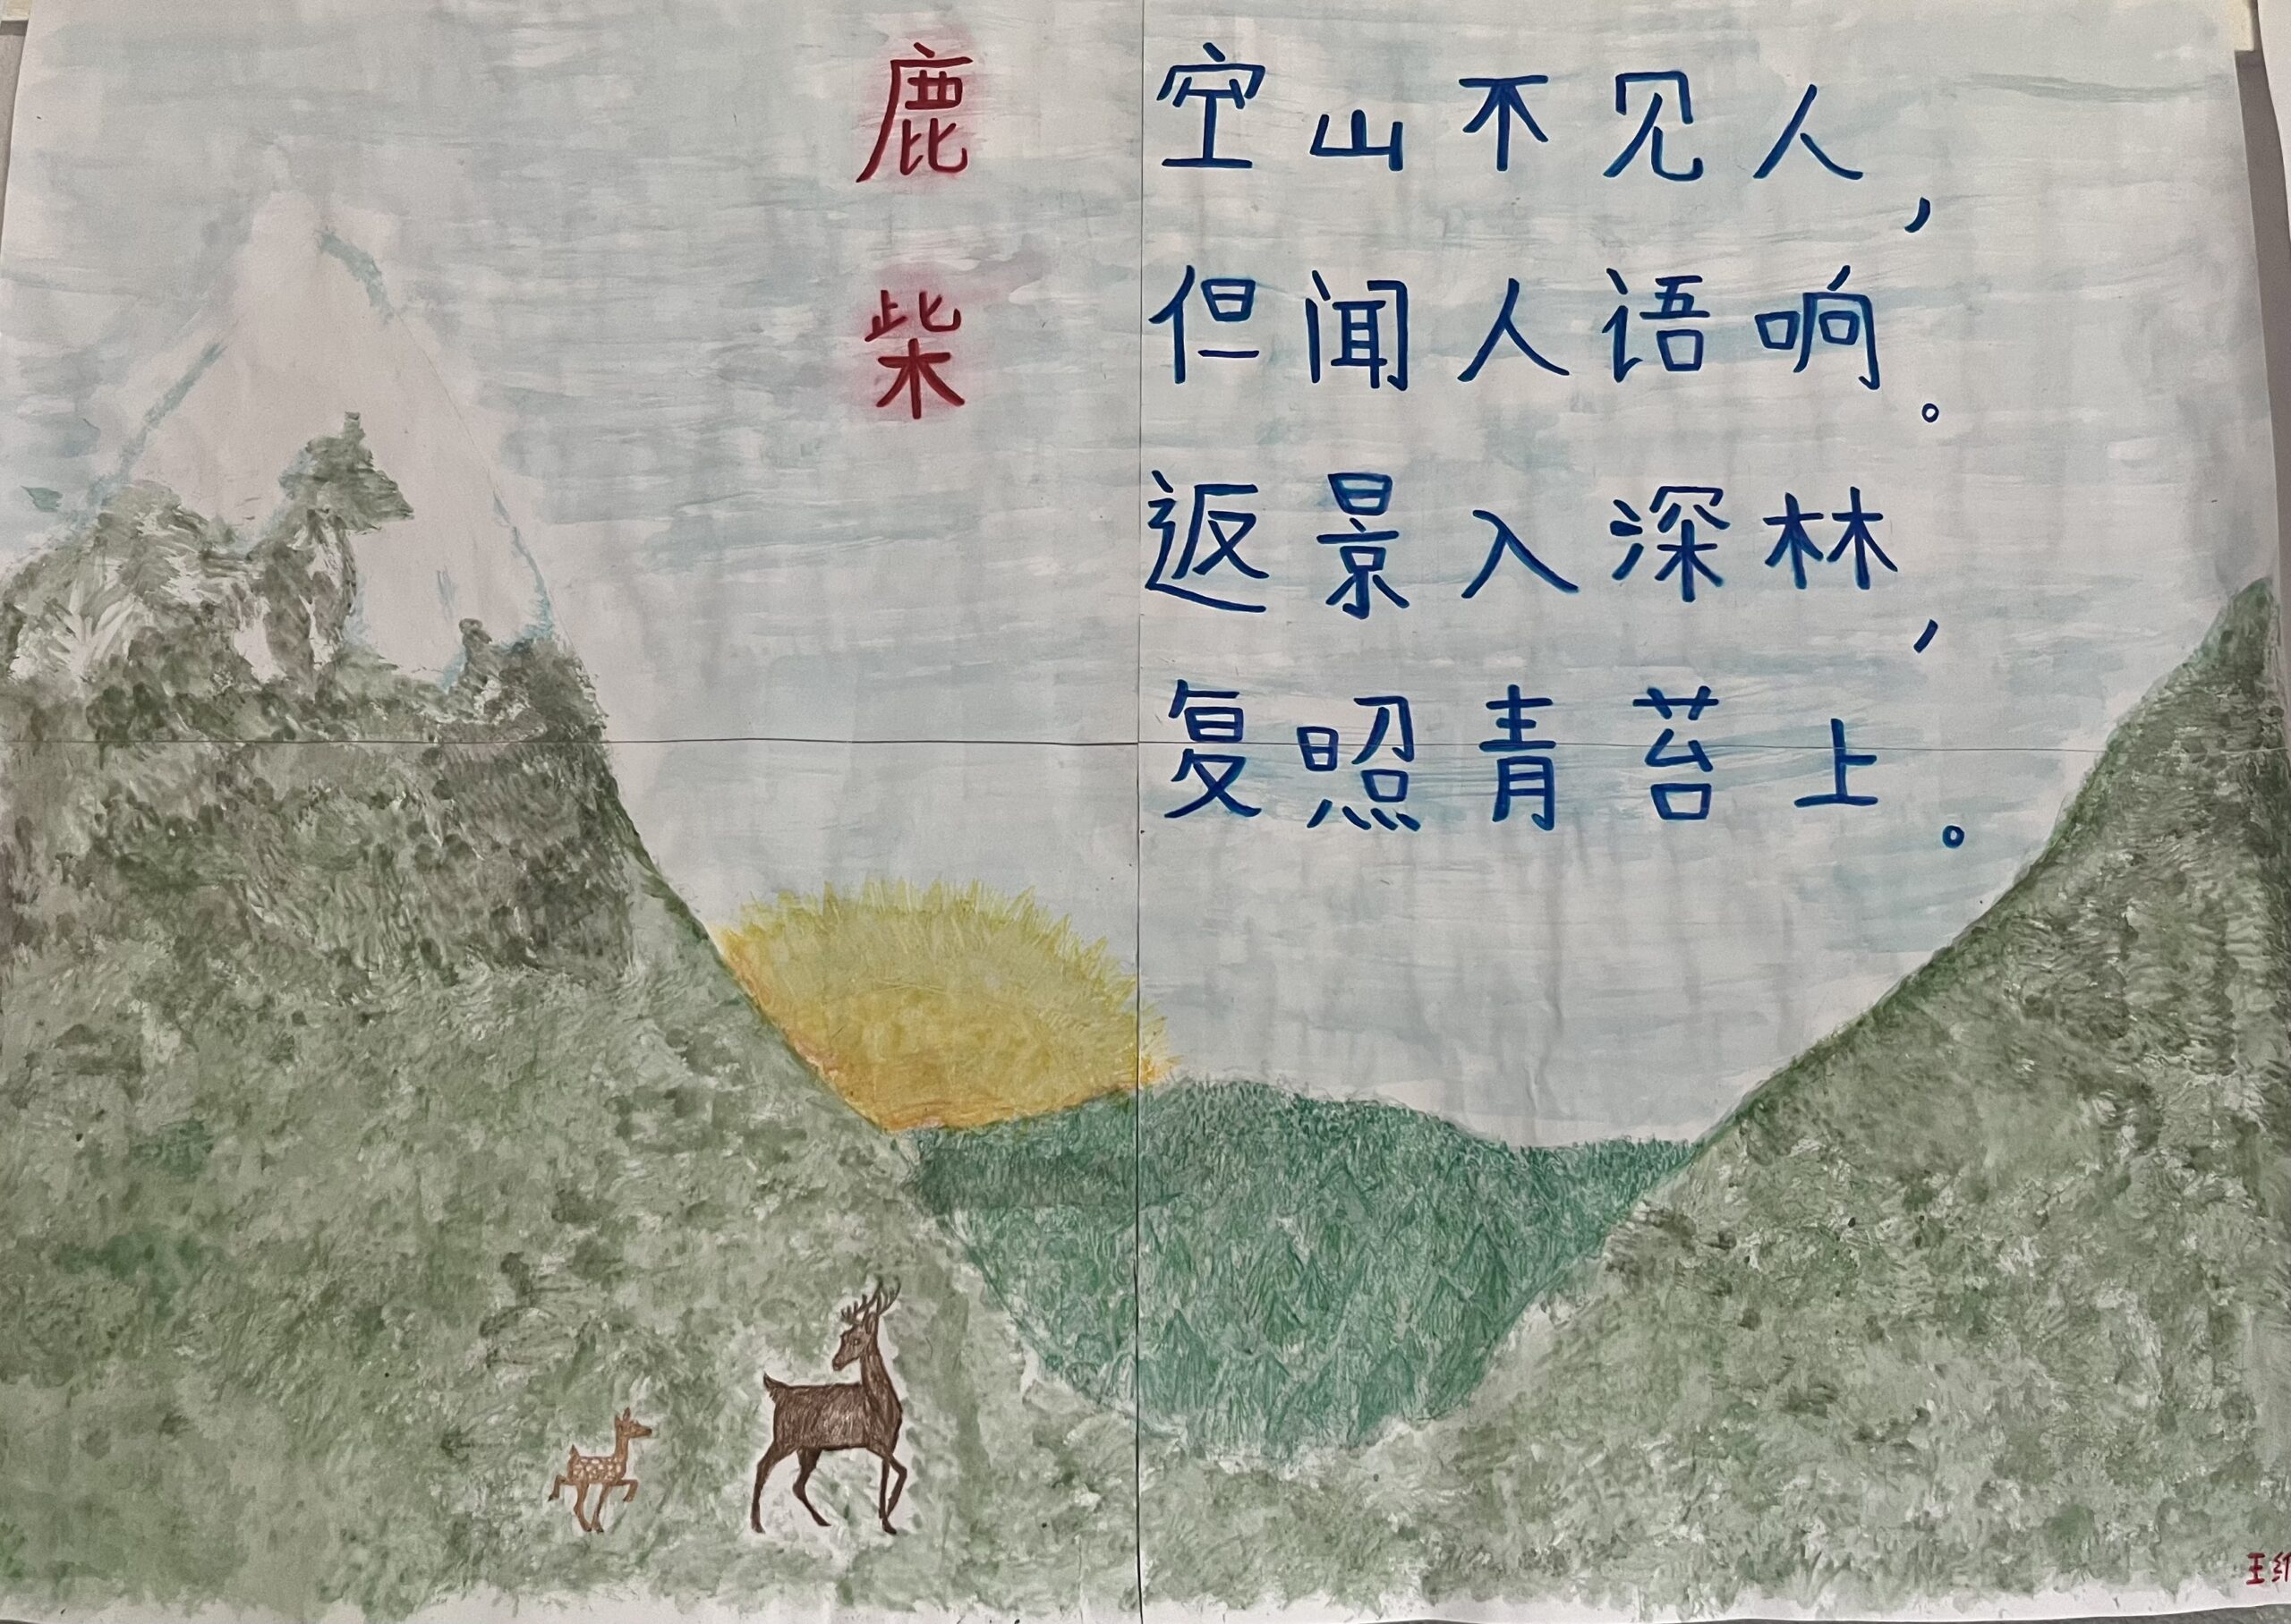 鹿柴
空山不见人，
但闻人语响。
返景入深林，
复照青苔上。
王